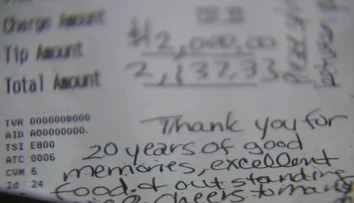 Charge Amount
Tip Amount $2,000.00
Total Amount 2,137.33
TVR 0000008000
AID A00000000.
TSI E800
ATC 0006
CVM 6
Id 24
Thank you for
20 years of good
memories, excellent
food & out standing
Cheers to many